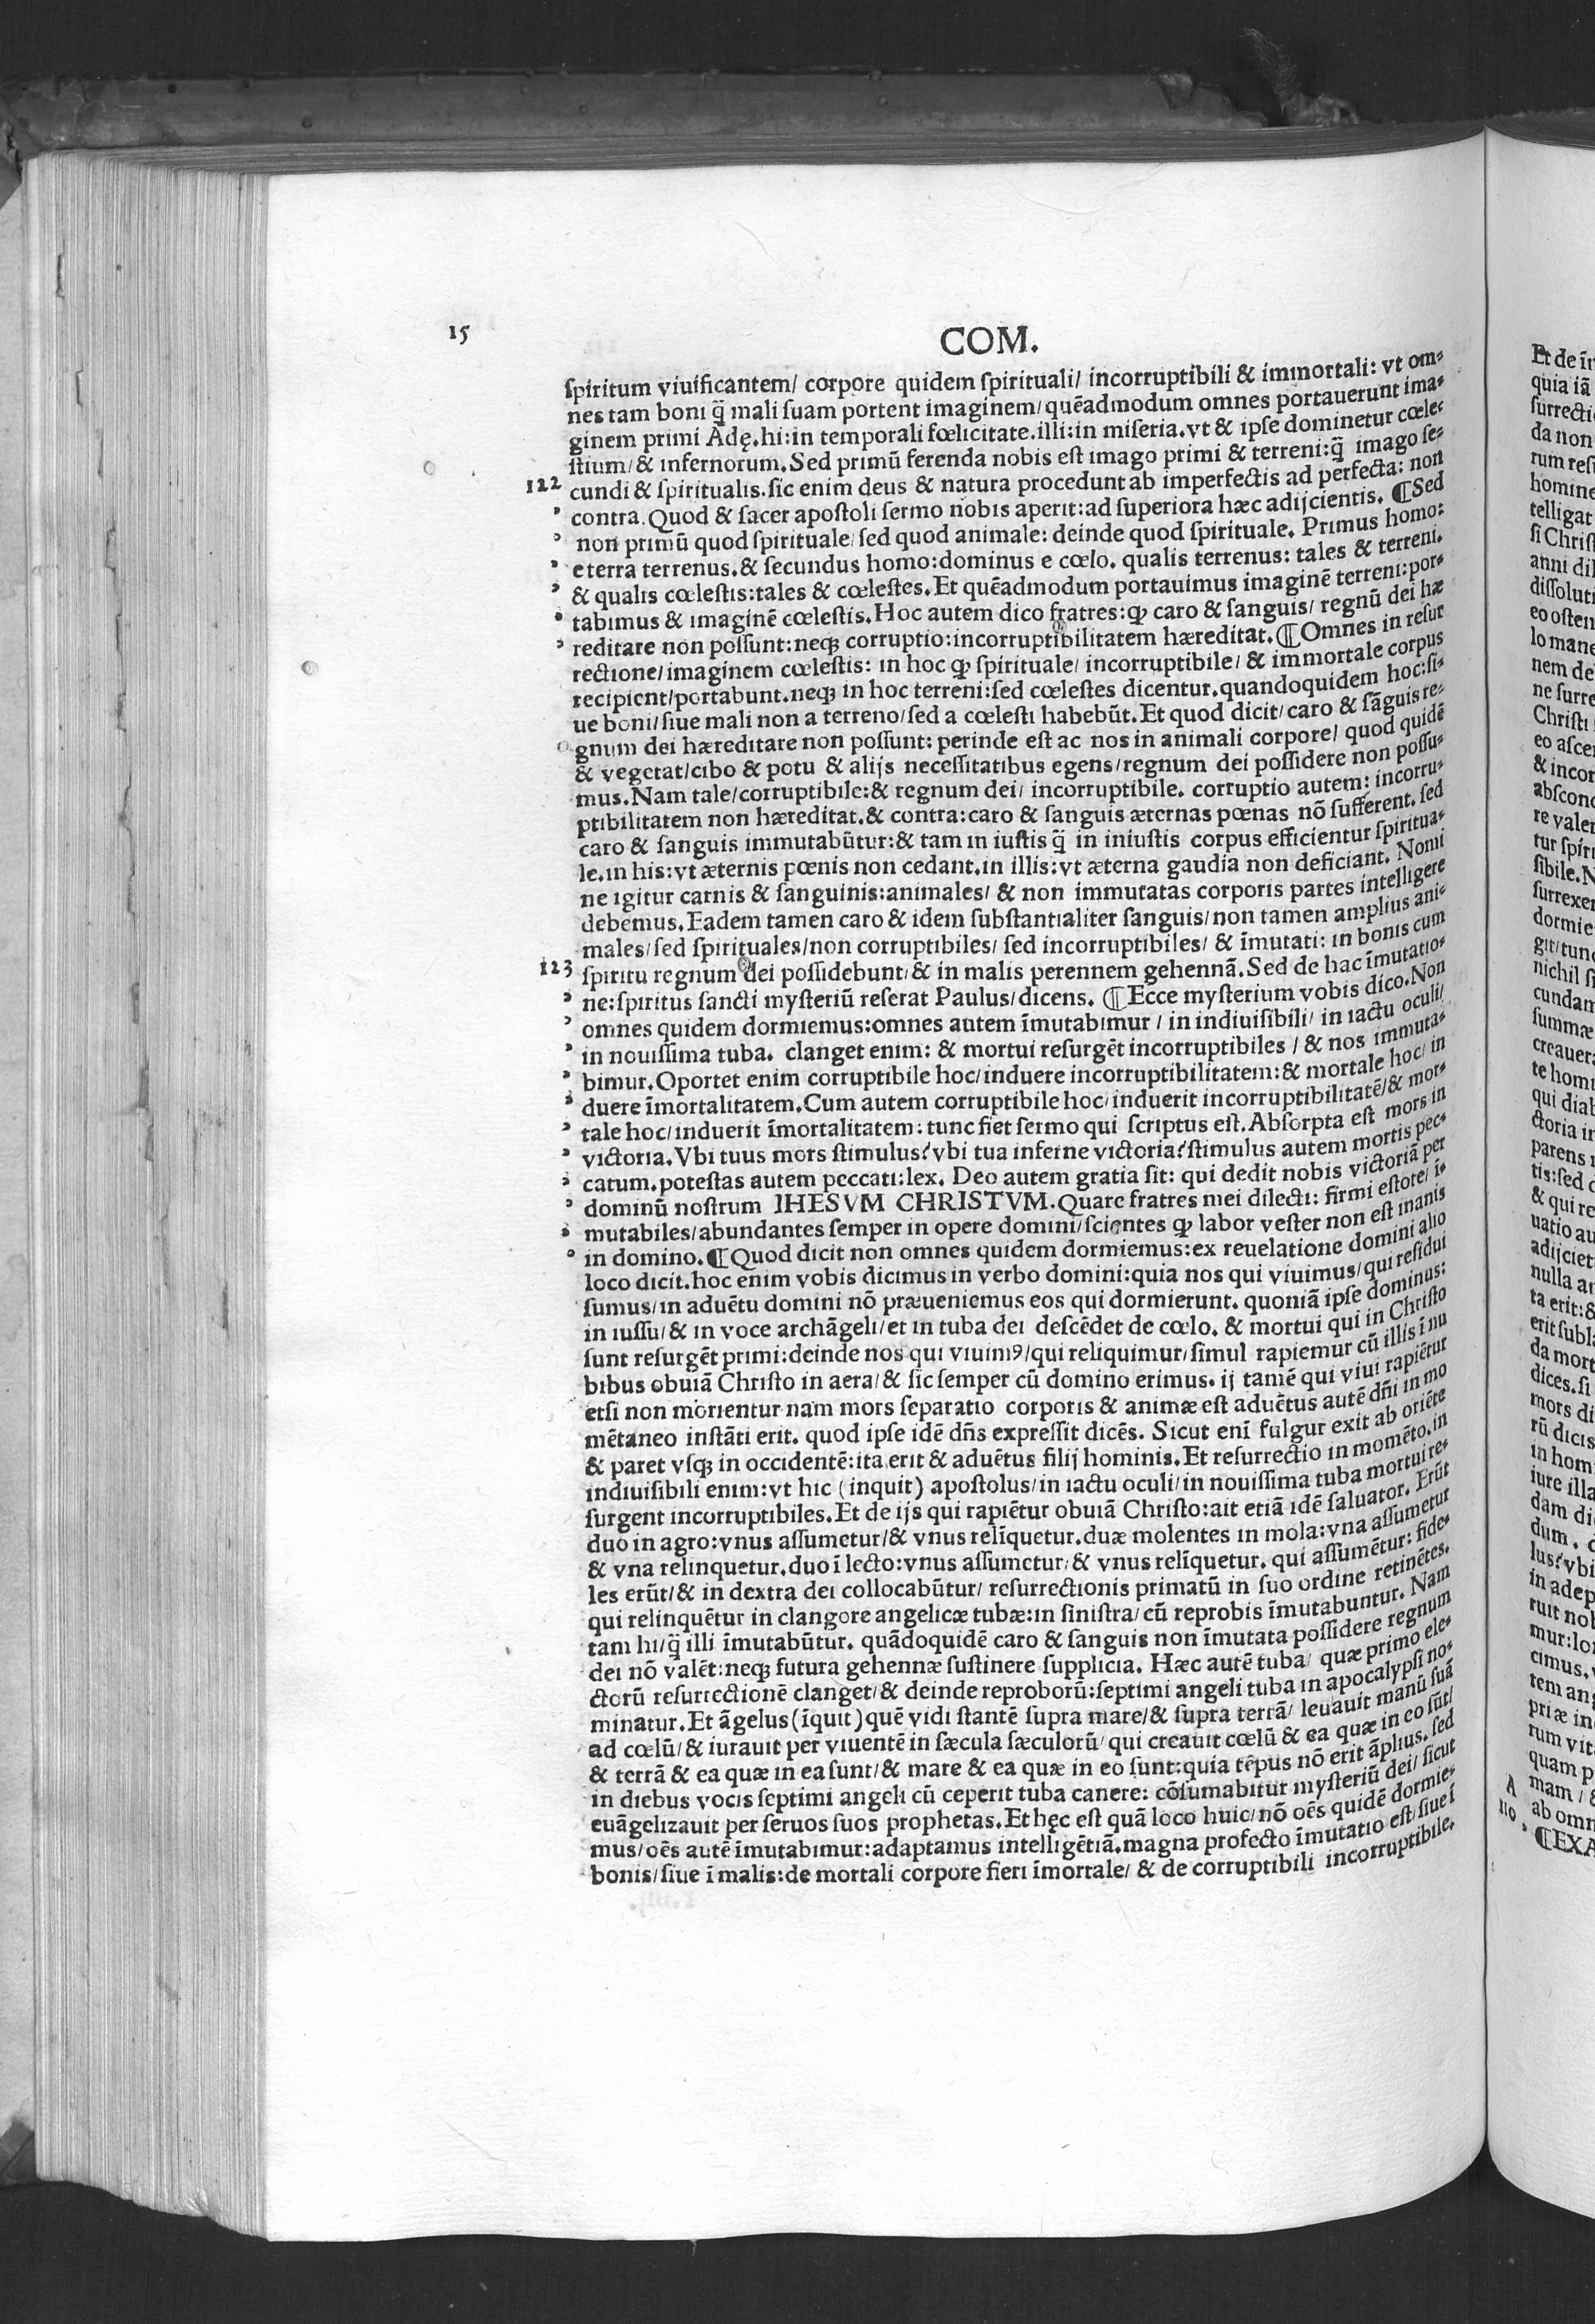 15
COM.
ſpiritum viuificantem/ corpore quidem ſpirituali/ incorruptibili & immortali: vt om⸗
nes tam boni q̃ mali ſuam portent imaginem/ quẽadmodum omnes portauerunt ima⸗
ginem primi Adę. hi: in temporali fœlicitate. illi: in miſeria. vt & ipſe dominetur cœle⸗
ſtium/ & infernorum. Sed primũ ferenda nobis eſt imago primi & terreni: q̃ imago ſe⸗
122 cundi & ſpiritualis. ſic enim deus & natura procedunt ab imperfectis ad perfecta: non
contra. Quod & ſacer apoſtoli ſermo nobis aperit: ad ſuperiora hæc adijcientis. ¶ Sed
non primũ quod ſpirituale/ ſed quod animale: deinde quod ſpirituale. Primus homo:
e terra terrenus. & ſecundus homo: dominus e cœlo. qualis terrenus: tales & terreni.
& qualis cœleſtis: tales & cœleſtes. Et quẽadmodum portauimus imaginẽ terreni: por⸗
tabimus & imaginẽ cœleſtis. Hoc autem dico fratres: ꝙ caro & ſanguis/ regnũ dei hæ
reditare non poſſunt: neqꝫ corruptio: incorruptibilitatem hæreditat. ¶ Omnes in reſur
rectione/ imaginem cœleſtis: in hoc ꝙ ſpirituale/ incorruptibile/ & immortale corpus
recipient/ portabunt. neqꝫ in hoc terreni: ſed cœleſtes dicentur. quandoquidem hoc: ſi⸗
ue boni/ ſiue mali non a terreno/ ſed a cœleſti habebũt. Et quod dicit/ caro & ſãguis re⸗
gnum dei hæreditare non poſſunt: perinde eſt ac nos in animali corpore/ quod quidẽ
& vegetat/ cibo & potu & alijs neceſſitatibus egens/ regnum dei poſſidere non poſſu⸗
mus. Nam tale/ corruptibile: & regnum dei/ incorruptibile. corruptio autem: incorru⸗
ptibilitatem non hæreditat. & contra: caro & ſanguis æternas pœnas nõ ſufferent. ſed
caro & ſanguis immutabũtur: & tam in iuſtis q̃ in iniuſtis corpus efficientur ſpiritua⸗
le. in his: vt æternis pœnis non cedant. in illis: vt æterna gaudia non deficiant. Nomi
ne igitur carnis & ſanguinis: animales/ & non immutatas corporis partes intelligere
debemus. Eadem tamen caro & idem ſubſtantialiter ſanguis/ non tamen amplius ani⸗
males/ ſed ſpirituales/ non corruptibiles/ ſed incorruptibiles/ & ĩmutati: in bonis cum
123 ſpiritu regnum dei poſſidebunt/ & in malis perennem gehennã. Sed de hac ĩmutatio⸗
ne: ſpiritus ſancti myſteriũ reſerat Paulus/ dicens. ¶ Ecce myſterium vobis dico. Non
omnes quidem dormiemus: omnes autem ĩmutabimur / in indiuiſibili/ in iactu oculi/
in nouiſſima tuba. clanget enim: & mortui reſurgẽt incorruptibiles / & nos immuta⸗
bimur. Oportet enim corruptibile hoc/ induere incorruptibilitatem: & mortale hoc/ in
duere ĩmortalitatem. Cum autem corruptibile hoc/ induerit incorruptibilitatẽ/ & mor⸗
tale hoc/ induerit ĩmortalitatem: tunc fiet ſermo qui ſcriptus eſt. Abſorpta eſt mors in
victoria. Vbi tuus mors ſtimulus? vbi tua inferne victoria? ſtimulus autem mortis pec⸗
catum. poteſtas autem peccati: lex. Deo autem gratia ſit: qui dedit nobis victoriã per
dominũ noſtrum IHESVM CHRISTVM. Quare fratres mei dilecti: firmi eſtote/ ĩ⸗
mutabiles/ abundantes ſemper in opere domini/ ſcientes ꝙ labor veſter non eſt inanis
in domino. ¶ Quod dicit non omnes quidem dormiemus: ex reuelatione domini alio
loco dicit. hoc enim vobis dicimus in verbo domini: quia nos qui viuimus/ qui reſidui
ſumus/ in aduẽtu domini nõ præueniemus eos qui dormierunt. quoniã ipſe dominus:
in iuſſu/ & in voce archãgeli/ et in tuba dei deſcẽdet de cœlo. & mortui qui in Chriſto
ſunt reſurgẽt primi: deinde nos qui viuimꝰ/ qui reliquimur/ ſimul rapiemur cũ illis ĩ nu
bibus obuiã Chriſto in aera/ & ſic ſemper cũ domino erimus. ij tamẽ qui viui rapiẽtur
etſi non morientur nam mors ſeparatio corporis & animæ eſt aduẽtus autẽ dñi in mo
mẽtaneo inſtãti erit. quod ipſe idẽ dñs expreſſit dicẽs. Sicut enĩ fulgur exit ab oriẽte
& paret vſqꝫ in occidentẽ: ita erit & aduẽtus filij hominis. Et reſurrectio in momẽto. in
indiuiſibili enim: vt hic (inquit) apoſtolus/ in iactu oculi/ in nouiſſima tuba mortui re⸗
ſurgent incorruptibiles. Et de ijs qui rapiẽtur obuiã Chriſto: ait etiã idẽ ſaluator. Erũt
duo in agro: vnus aſſumetur/ & vnus relĩquetur. duæ molentes in mola: vna aſſumetur
& vna relinquetur. duo ĩ lecto: vnus aſſumetur/ & vnus relĩquetur. qui aſſumẽtur: fide⸗
les erũt/ & in dextra dei collocabũtur/ reſurrectionis primatũ in ſuo ordine retinẽtes.
qui relinquẽtur in clangore angelicæ tubæ: in ſiniſtra/ cũ reprobis ĩmutabuntur. Nam
tam hi/ q̃ illi ĩmutabũtur. quãdoquidẽ caro & ſanguis non ĩmutata poſſidere regnum
dei nõ valẽt: neqꝫ futura gehennæ ſuſtinere ſupplicia. Hæc autẽ tuba/ quæ primo ele⸗
ctorũ reſurrectionẽ clanget/ & deinde reproborũ: ſeptimi angeli tuba in apocalypſi no⸗
minatur. Et ãgelus (ĩquit) quẽ vidi ſtantẽ ſupra mare/ & ſupra terrã/ leuauit manũ ſuã
ad cœlũ/ & iurauit per viuentẽ in ſæcula ſæculorũ/ qui creauit cœlũ & ea quæ in eo ſũt/
& terrã & ea quæ in ea ſunt/ & mare & ea quæ in eo ſunt: quia tẽpus nõ erit ãplius. ſed
in diebus vocis ſeptimi angeli cũ ceperit tuba canere: cõſumabitur myſteriũ dei/ ſicut
euãgelizauit per ſeruos ſuos prophetas. Et hęc eſt quã loco huic/ nõ oẽs quidẽ dormie⸗
mus/ oẽs autẽ ĩmutabimur: adaptamus intelligẽtiã. magna profecto ĩmutatio eſt/ ſiue ĩ
bonis/ ſiue ĩ malis: de mortali corpore fieri ĩmortale/ & de corruptibili incorruptibile.